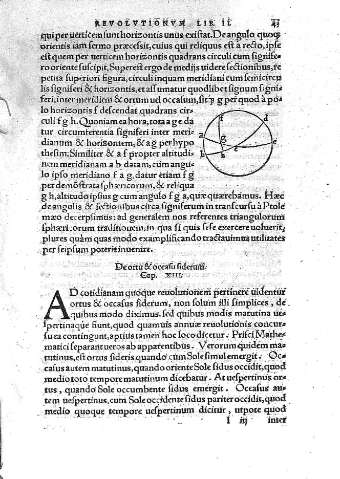 REVOLVTIONVM LIB. II. 43
qui per uerticem sunt horizontis unus existat. De angulo quoque
orientis iam sermo præcessit, cuius qui reliquus est à recto, ipse
est quem per uerticem horizontis quadrans circuli cum signife-
ro oriente suscipit. Superest ergo de medijs uidere sectionibus, re
petita superiori figura, circuli inquam meridiani cum semicircu
lis signiferi & horizontis, et assumatur quodlibet signum signi
feri, inter meridiem & ortum uel occasum, sitque g per quod à po
lo horizontis f descendat quadrans cir-
culi f g h. Quoniam ea hora, tota a g e da
tur circumferentia signiferi inter meri-
dianum & horizontem, & a g per hypo
thesim: Similiter & a f propter altitudi
nem meridianam a b datam, cum angu-
lo ipso meridiano f a g, datur etiam f g
per demonstrata sphæricorum, & reliqua
g h, altitudo ipsius g cum angulo f g a, quæ quærebamus. Hæc
de angulis & sectionibus circa signiferum in transcursu à Ptole
mæo decerpsimus: ad generalem nos referentes triangulorum
sphæricorum traditionem, in qua si quis sese exercere uoluerit,
plures quàm quas modo exemplificando tractauimus utilitates
per seipsum poterit inuenire.
a
b
c
d
e
f
g
h
De ortu & occasu siderum.
Cap. XIII.
AD cotidianam quoque reuolutionem pertinere uidentur
ortus & occasus siderum, non solum illi simplices, de
quibus modo diximus. sed quibus modis matutina ue
spertinaque fiunt, quod quamuis annuæ reuolutionis concur-
su ea contingunt, aptius tamen hoc loco dicetur. Prisci Mathe-
matici separant ueros ab apparentibus. Verorum quidem ma-
tutinus, est ortus sideris quando cum Sole simul emergit. Oc-
casus autem matutinus, quando oriente Sole sidus occidit, quod
medio toto tempore matutinum dicebatur. At uespertinus or-
tus, quando Sole occumbente sidus emergit. Occasus au-
tem uespertinus, cum Sole occidente sidus pariter occidit, quod
medio quoque tempore uespertinum dicitur, utpote quod
l iij inter